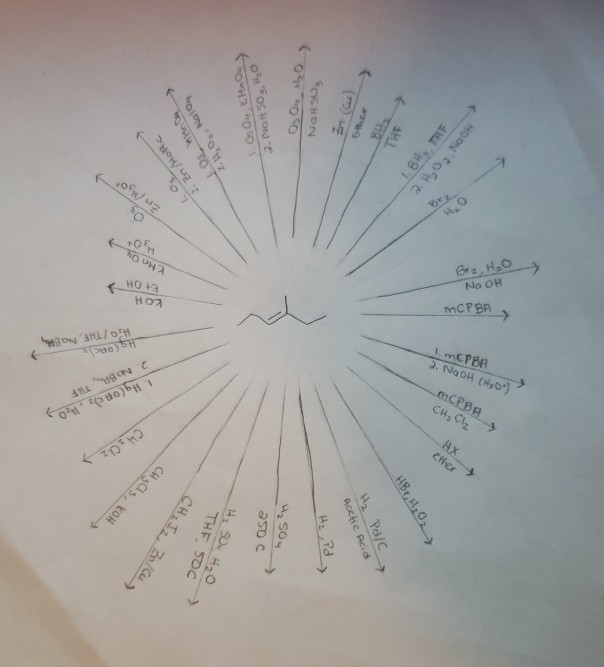 OsO4, H2O
NaHSO3
Zn (Cu)
Ether
BH3
THF
1. BH3, THF
2. H2O2, NaOH
Br2
H2O
Br2, H2O
NaOH
mCPBA
1. mCPBA
2. NaOH (H3O+)
mCPBA
CH2Cl2
HX
ether
HBr, H2O2
H2 Pd/C
Acetic Acid
H2, Pd
H2SO4
250 C
H2SO4, H2O
THF, 50C
CH2I2, Zn/Cu
CH3Cl3, KOH
CH2Cl2
1. Hg(OAc)2, H2O
2. NaBH4, THF
Hg(OAc)2
H2O/THF, NaBH4
KOH
EtOH
KMnO4
H3O+
O3
Zn/H3O+
1. O3
2. Zn/HOAc
2. H2O2,
1. OsO4, KMnO4
2. NaHSO3, H2O